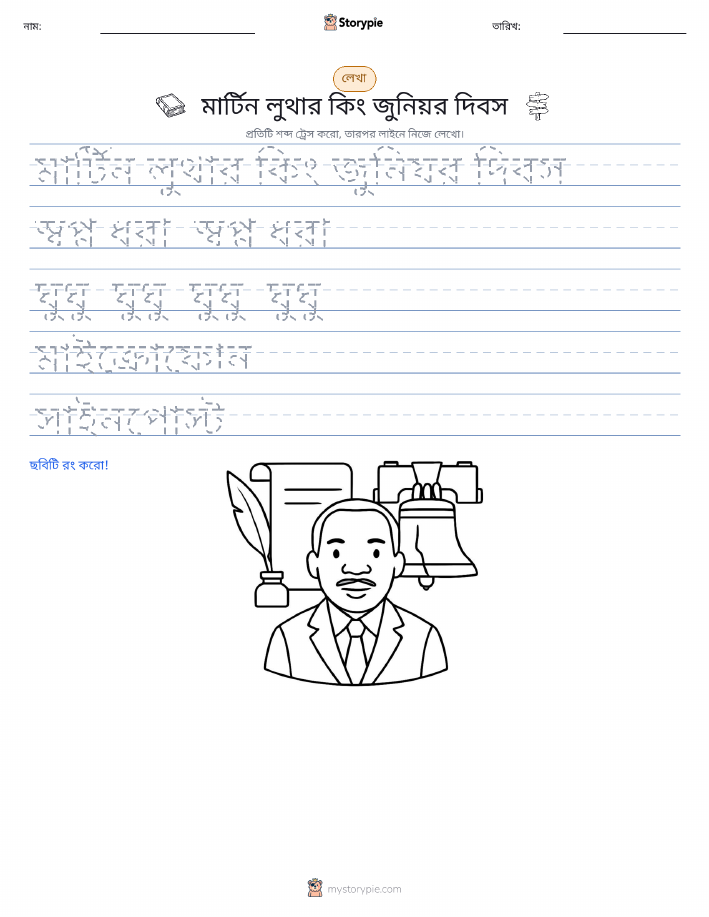 নাম:
Storypie
তারিখ:
লেখা
মার্টিন লুথার কিং জুনিয়র দিবস
প্রতিটি শব্দ ট্রেস করো, তারপর লাইনে নিজে লেখো।
মার্টিন লুথার কিং জুনিয়র দিবস
স্বপ্ন ধরা স্বপ্ন ধরা
ঘুঘু ঘুঘু ঘুঘু ঘুঘু
মাইক্রোফোন
সাইনপোস্ট
ছবিটি রং করো!
mystorypie.com